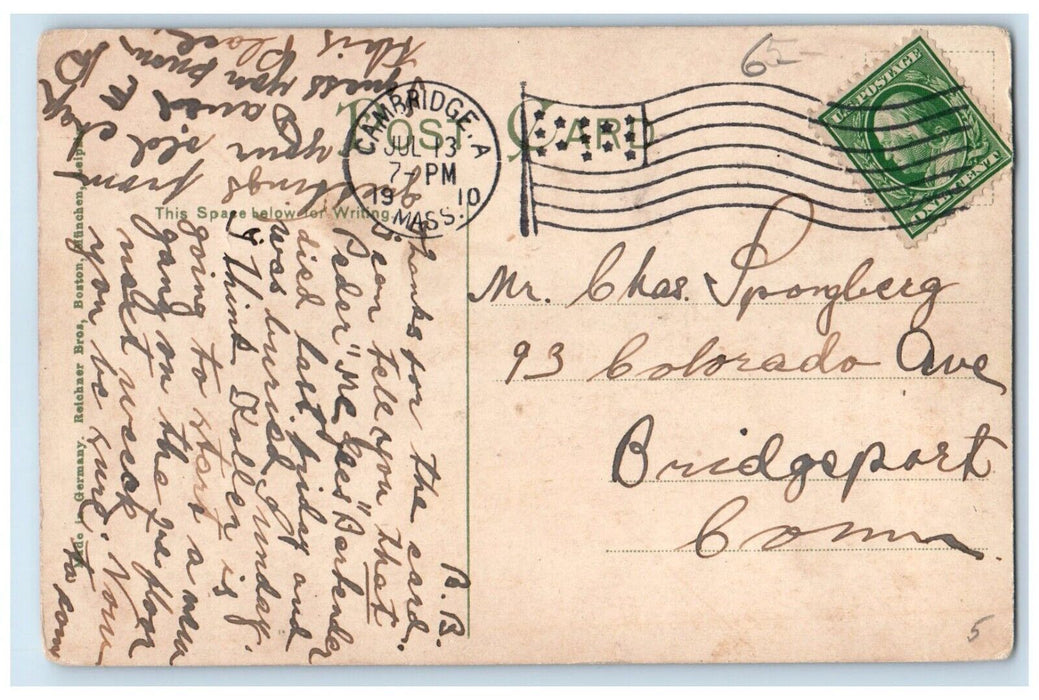 65-
POST CARD
CAMBRIDGE. A
JUL 13
7-PM
19 10
MASS.
U.S. POSTAGE
ONE CENT
This Space below for Writing
Made in Germany. Reichner Bros, Boston, München, Leipzig
Mr. Chas. Spongberg
93 Colorado Ave
Bridgeport
Conn.
B. B.
Thanks for the card.
I can tell you that
Peder "Mc Gees" Bartender
died last friday and
was buried Sunday.
I think Foller is
going to start a new
gang on the floor
next week
you be sure. Now
to som
from
your old
greetings
David
guess you know
this Place
5